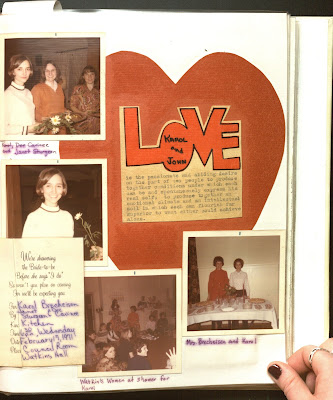 LOVE
KAROL
and
JOHN
is the passionate and abiding desire
on the part of two people to produce
together conditions under which each
can be and spontaneously express his
real self; to produce together an
intellectual soil and an emotional
climate in which each can flourish, far
superior to what either could achieve
alone.
Dee Carinee
and Janet Sturgeon
We're showering
the Bride-to-be
Before she says "I do"
So won't you plan on coming
For we'll be expecting you
For Karol Brecheisen
By Sturgeon & Carinee
For Kitchen
Wednesday
Date February 17, 1971
Place Council Room
Watkins Hall
Watkins Women at shower for
Karol
Mrs. Brecheisen and Karol